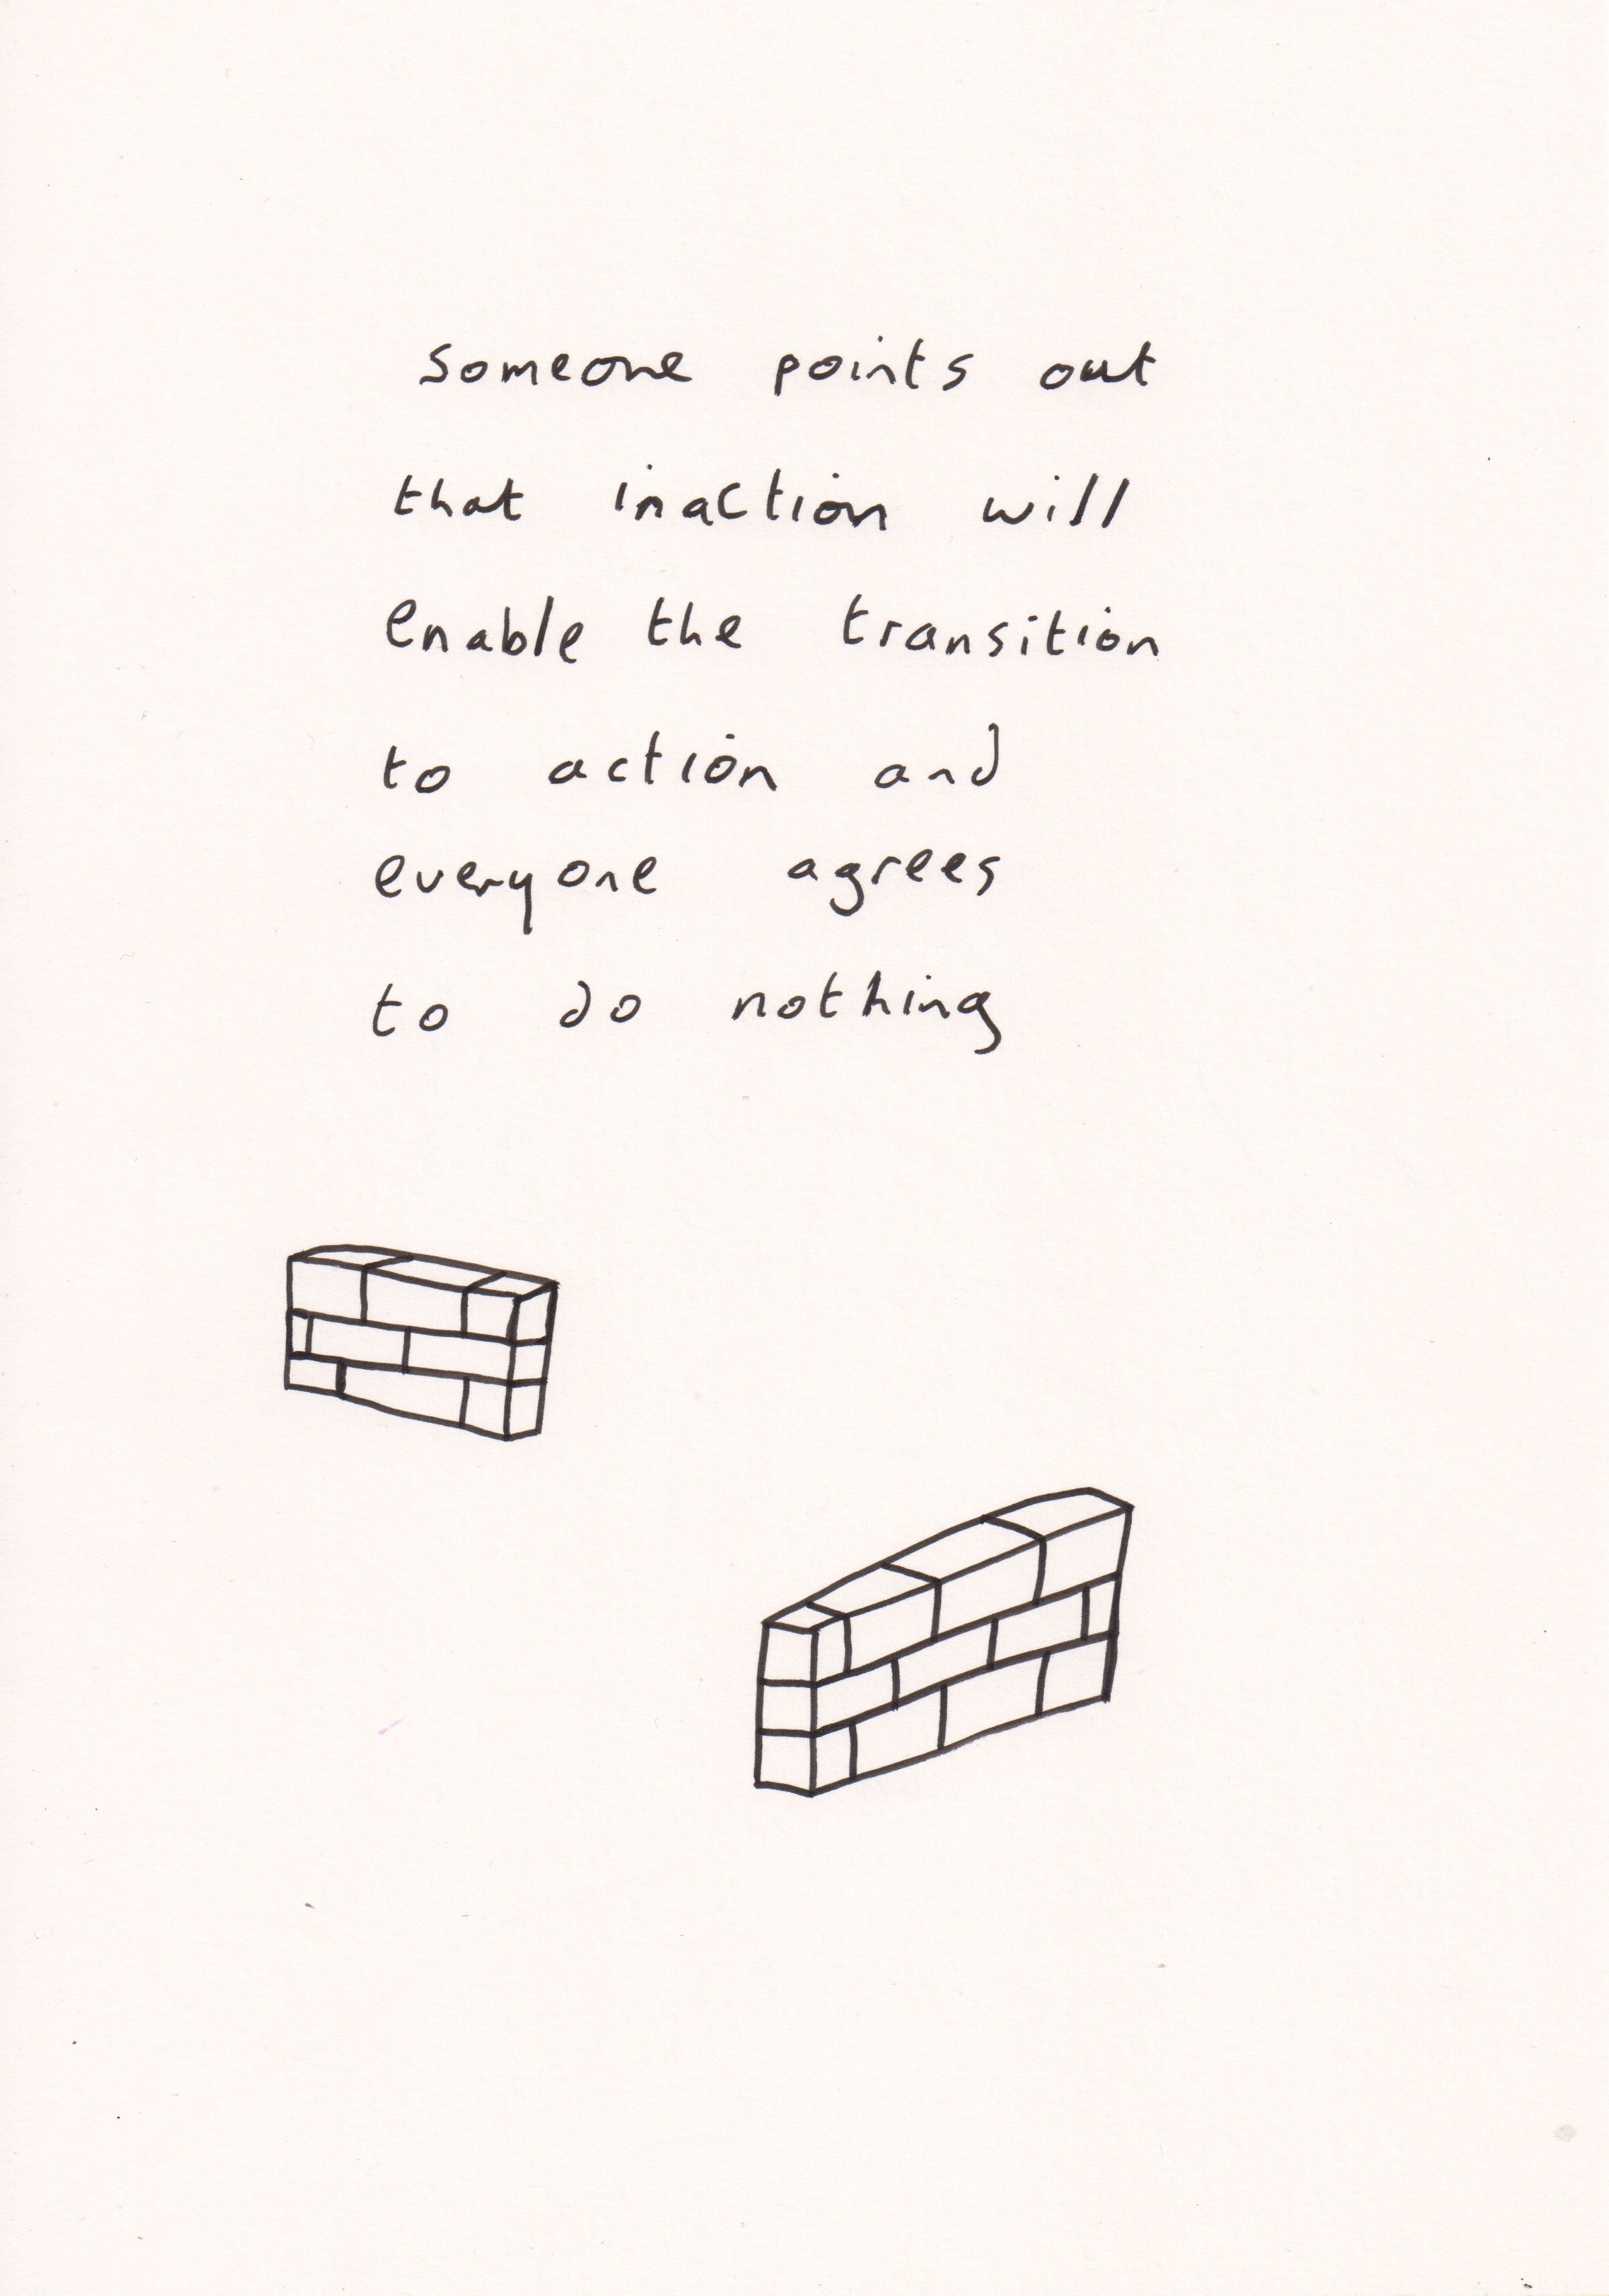 someone points out
that inaction will
enable the transition
to action and
everyone agrees
to do nothing